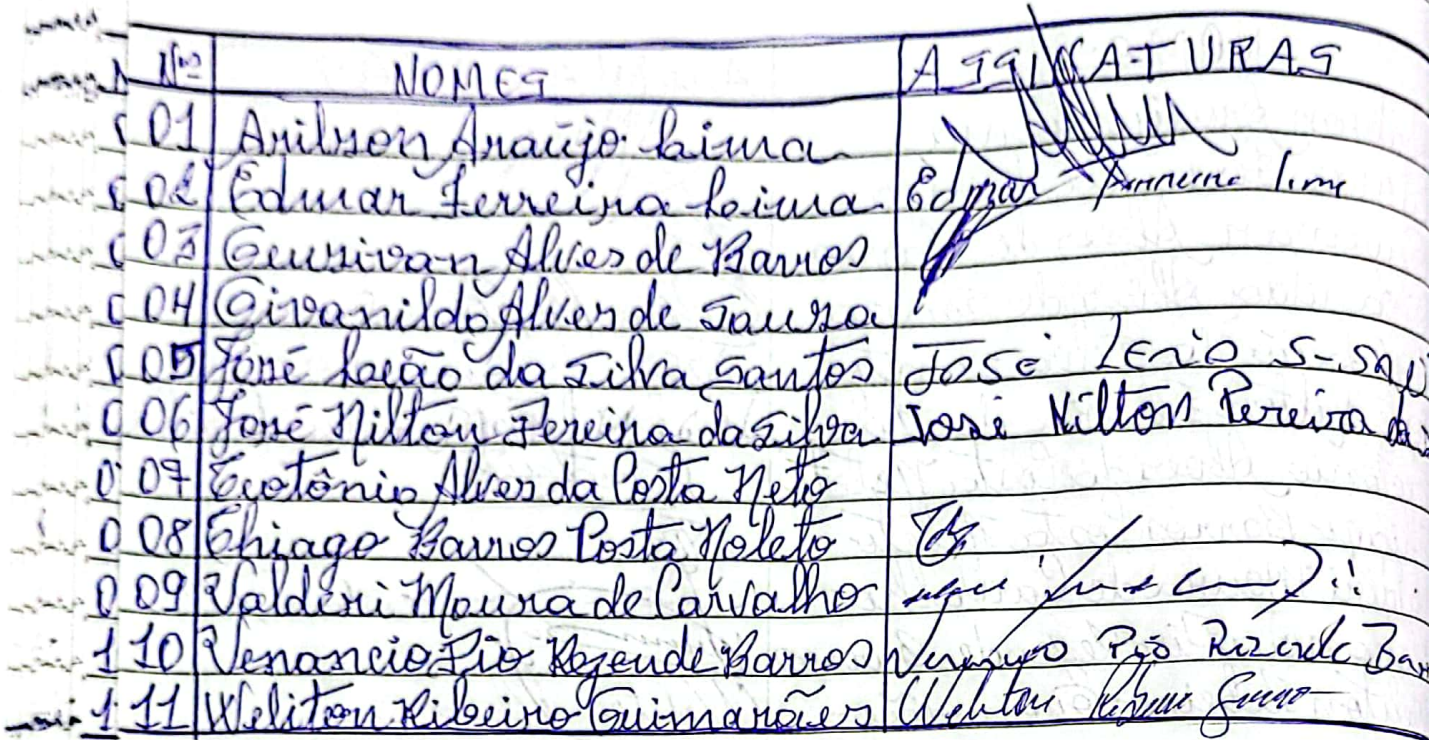 Nº NOMES ASSINATURAS
01 Arilson Araújo Lima
02 Edmar Ferreira Lima Edmar Ferreira Lima
03 Geusivan Alves de Barros
04 Givanildo Alves de Souza
05 José Lação da Silva Santos José
06 José Nilton Pereira da Silva José Nilton Pereira da
07 Teotônio Alves da Costa Neto
08 Thiago Barros Costa Noleto
09 Valderi Moura de Carvalho
1 10 Venancio Pio Rezende Barros Venancio Pio Rezende Bar
1 11 Weliton Ribeiro Guimarães Weliton Ribeiro